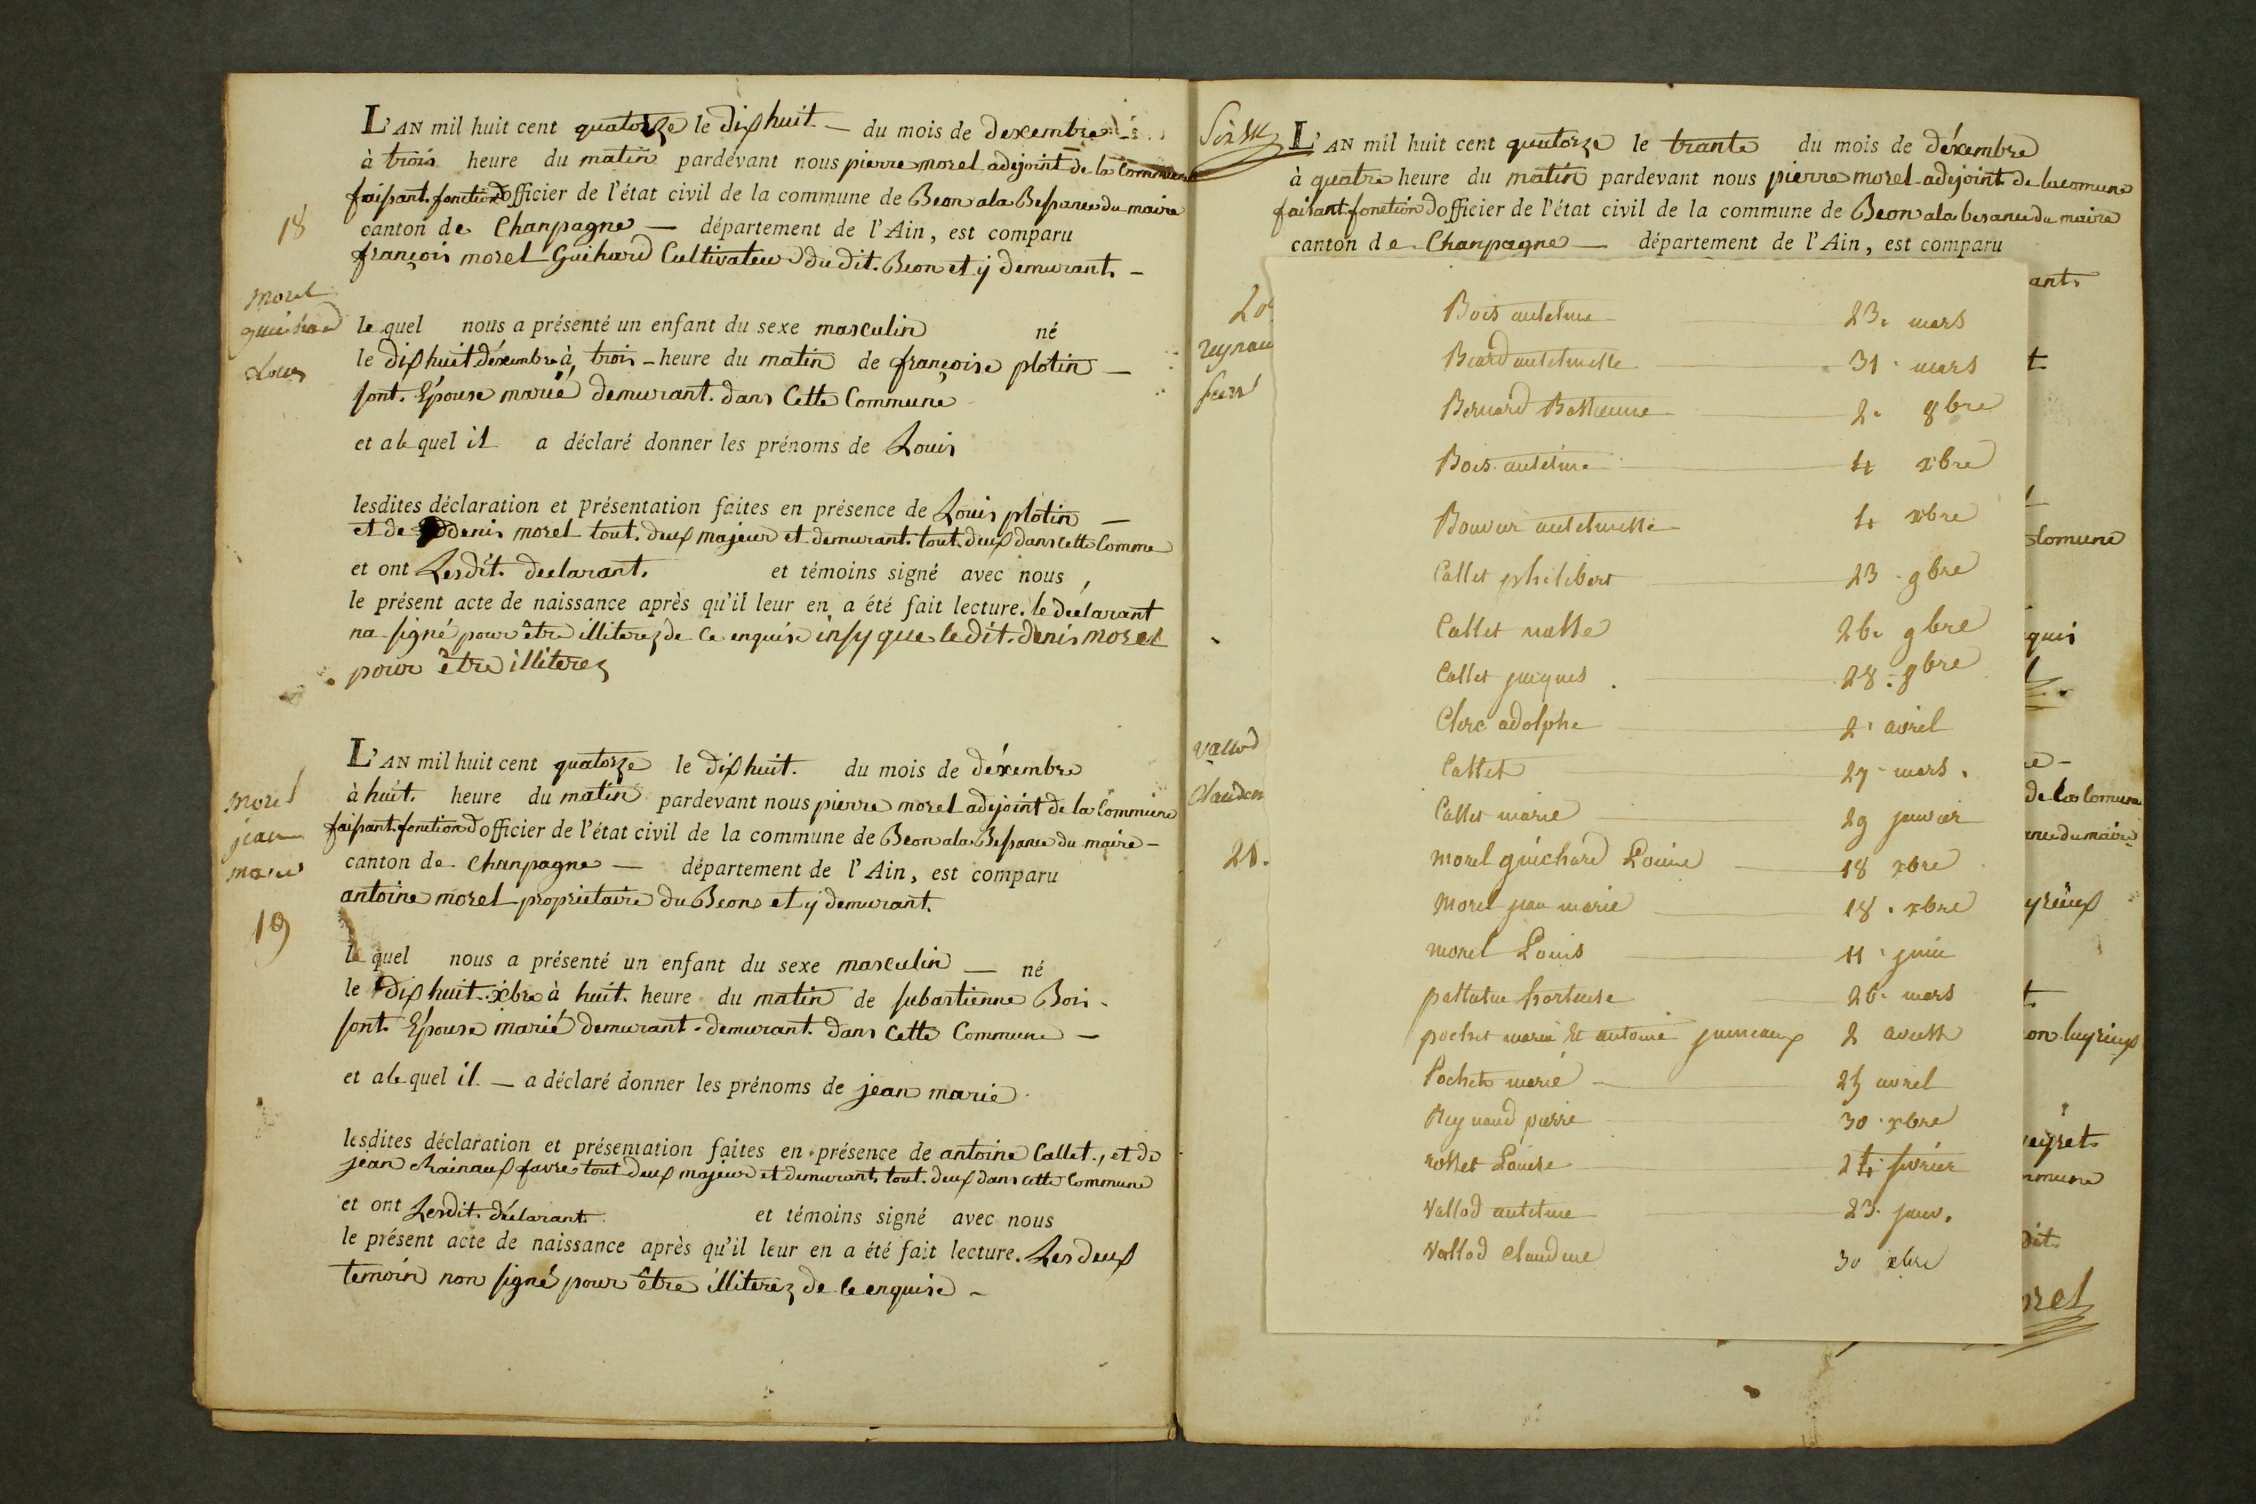 L'AN mil huit cent quatorze le dix huit — du mois de dexembre
à trois heure du matin pardevant nous pierre morel adejoint de la Commune
faisant fonction d'officier de l'état civil de la commune de Beon ala Besance du maire
18
canton de Chanpagne — département de l'Ain, est comparu
françois morel Guihard Cultivateur du dit. Beon et y demurant. —
morel
guichard
Louis
le quel nous a présenté un enfant du sexe masculin né
le dix huit déxembre à trois - heure du matin de françoise plotin —
sont. Epouse marié demurant. dans Cette Commune
et ale quel il a déclaré donner les prénoms de Louis
lesdites déclaration et présentation faites en présence de Louis plotin —
et de denis morel tout. deux majeur et demurant. tout. deux dans cette Comme
et ont Lesdit. declarant. et témoins signé avec nous,
le présent acte de naissance après qu'il leur en a été fait lecture. le déclarant
na signé pour être illiterez de ce enquise insy que le dit. denis morel
pour être illiterez
L'AN mil huit cent quatorze le dix huit. du mois de déxembre
morel
jean
marie
19
à huit. heure du matin pardevant nous pierre morel adejoint de la Commune
faisant. fonction d'officier de l'état civil de la commune de Beon ala Besance du maire —
canton de Chanpagne — département de l'Ain, est comparu
antoine morel propriétaire du Beons et y demurant.
le quel nous a présenté un enfant du sexe masculin — né
le dix huit. xbre à huit. heure du matin de subastienne Bois -
sont. Epouse marié demurant - demurant. dans Cette Commune —
et ale quel il — a déclaré donner les prénoms de jean marie
lesdites déclaration et présentation faites en présence de antoine Callet, et de
jean chainaux favre tout deux majeur et demurant. tout. deux dans cette Commune
et ont Lesdit. déclarant. et témoins signé avec nous
le présent acte de naissance après qu'il leur en a été fait lecture. Les deux
temoin non signé pour être illiterez de ce enquise —
L'AN mil huit cent quatorze le trante du mois de déxembre
à quatre heure du matin pardevant nous pierre morel adejoint de la comune
faisant fonction d'officier de l'état civil de la commune de Beon ala besance du maire
canton de Chanpagne — département de l'Ain, est comparu
ant.
20
reynau
vallod
claudin
21.
Bois antelme 23. mars
Béard antelmette 31. mars
Bernard Bathieune 2. 8bre
Bois antelme 4 xbre
Bouvier antelmette 4 xbre
Callet philibert 23. 9bre
Callet 26. 9bre
Callet jacques 28. 9bre
Clerc adolphe 2. avril
Callet 27. mars.
Callet marie 29 janvier
morel guichard Louise 18 xbre
Morel jean marie 18. xbre
morel Louis 11. juin
26. mars
pochet marie Et antoine jumeaux 2 avril
Pochet marie 25 avril
Reynaud pierre 30. xbre
rosset Louise 24. février
Vallod antelme 23. janv.
Vallod claudine 30 xbre
comune
quis
de la comune
ance du maire
yrieux
on luyrieux
eyret
mmune
dit
orel